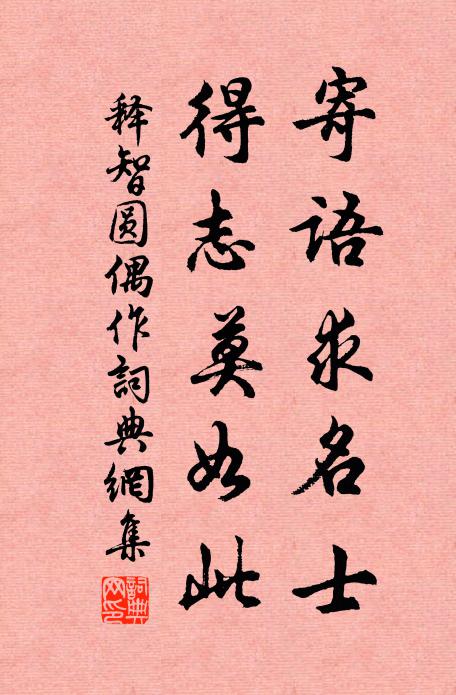 寄語求名士
得志莫如此
释智圆偶作詞典網集
詞典网印